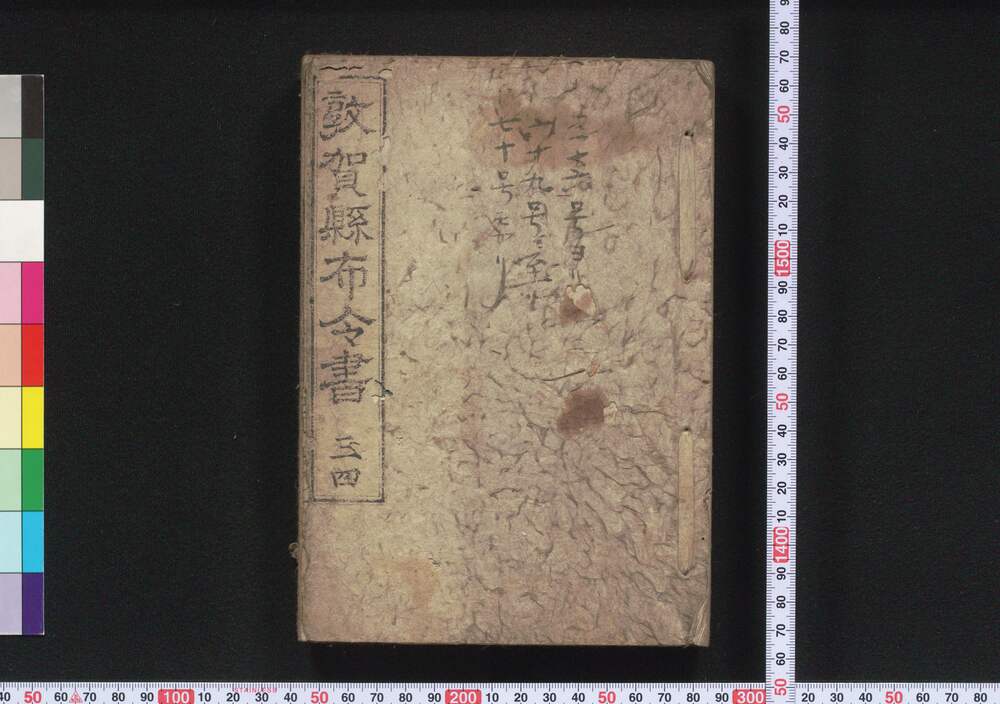 敦賀縣布令書 三四
六十九号ニ至
七十号
80
70
60
50
40
30
20
10
1500
90
80
70
60
50
40
30
20
10
1400
90
80
70
60
50
40 50 60 70 80 90 100 10 20 30 40 50 60 70 80 90 200 10 20 30 40 50 60 70 80 90 300 20 30 40 50 60 70 80
STAINLESS